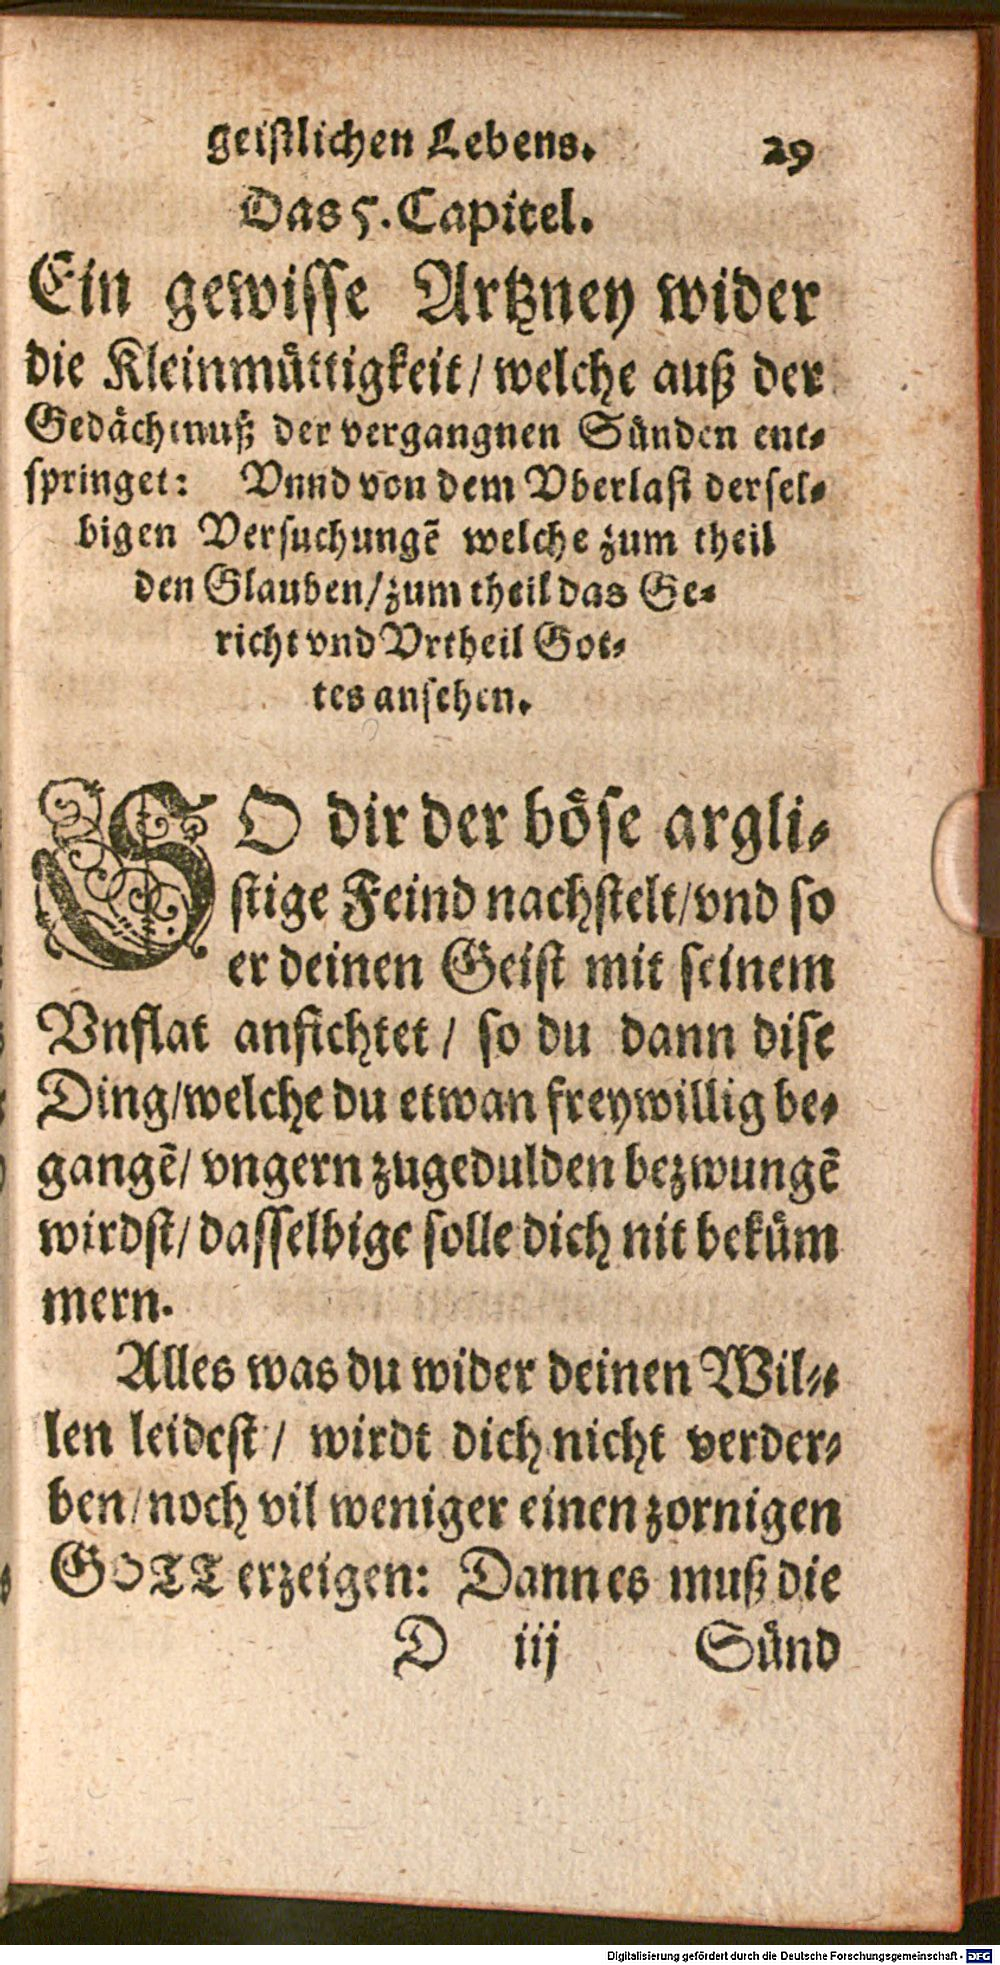 geistlichen Lebens. 29
Das 5. Capitel.
Ein gewisse Artzney wider
die Kleinmüttigkeit/ welche auß der
Gedächtnuß der vergangnen Sünden ent-
springet: Vnnd von dem Vberlast dersel-
bigen Versuchungẽ welche zum theil
den Glauben/ zum theil das Ge-
richt vnd Vrtheil Got-
tes ansehen.
SO dir der böse argli-
stige Feind nachstelt/ vnd so
er deinen Geist mit seinem
Vnflat anfichtet/ so du dann dise
Ding/ welche du etwan freywillig be-
gangẽ/ vngern zugedulden bezwungẽ
wirdst/ dasselbige solle dich nit beküm
mern.
Alles was du wider deinen Wil-
len leidest/ wirdt dich nicht verder-
ben/ noch vil weniger einen zornigen
GOTT erzeigen: Dann es muß die
D iij Sünd
Digitalisierung gefördert durch die Deutsche Forschungsgemeinschaft - DFG